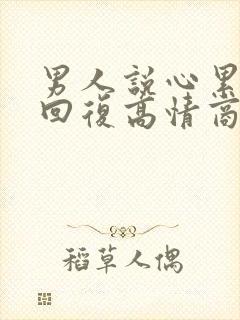 男人說心累
回復高情商
稻草人偶